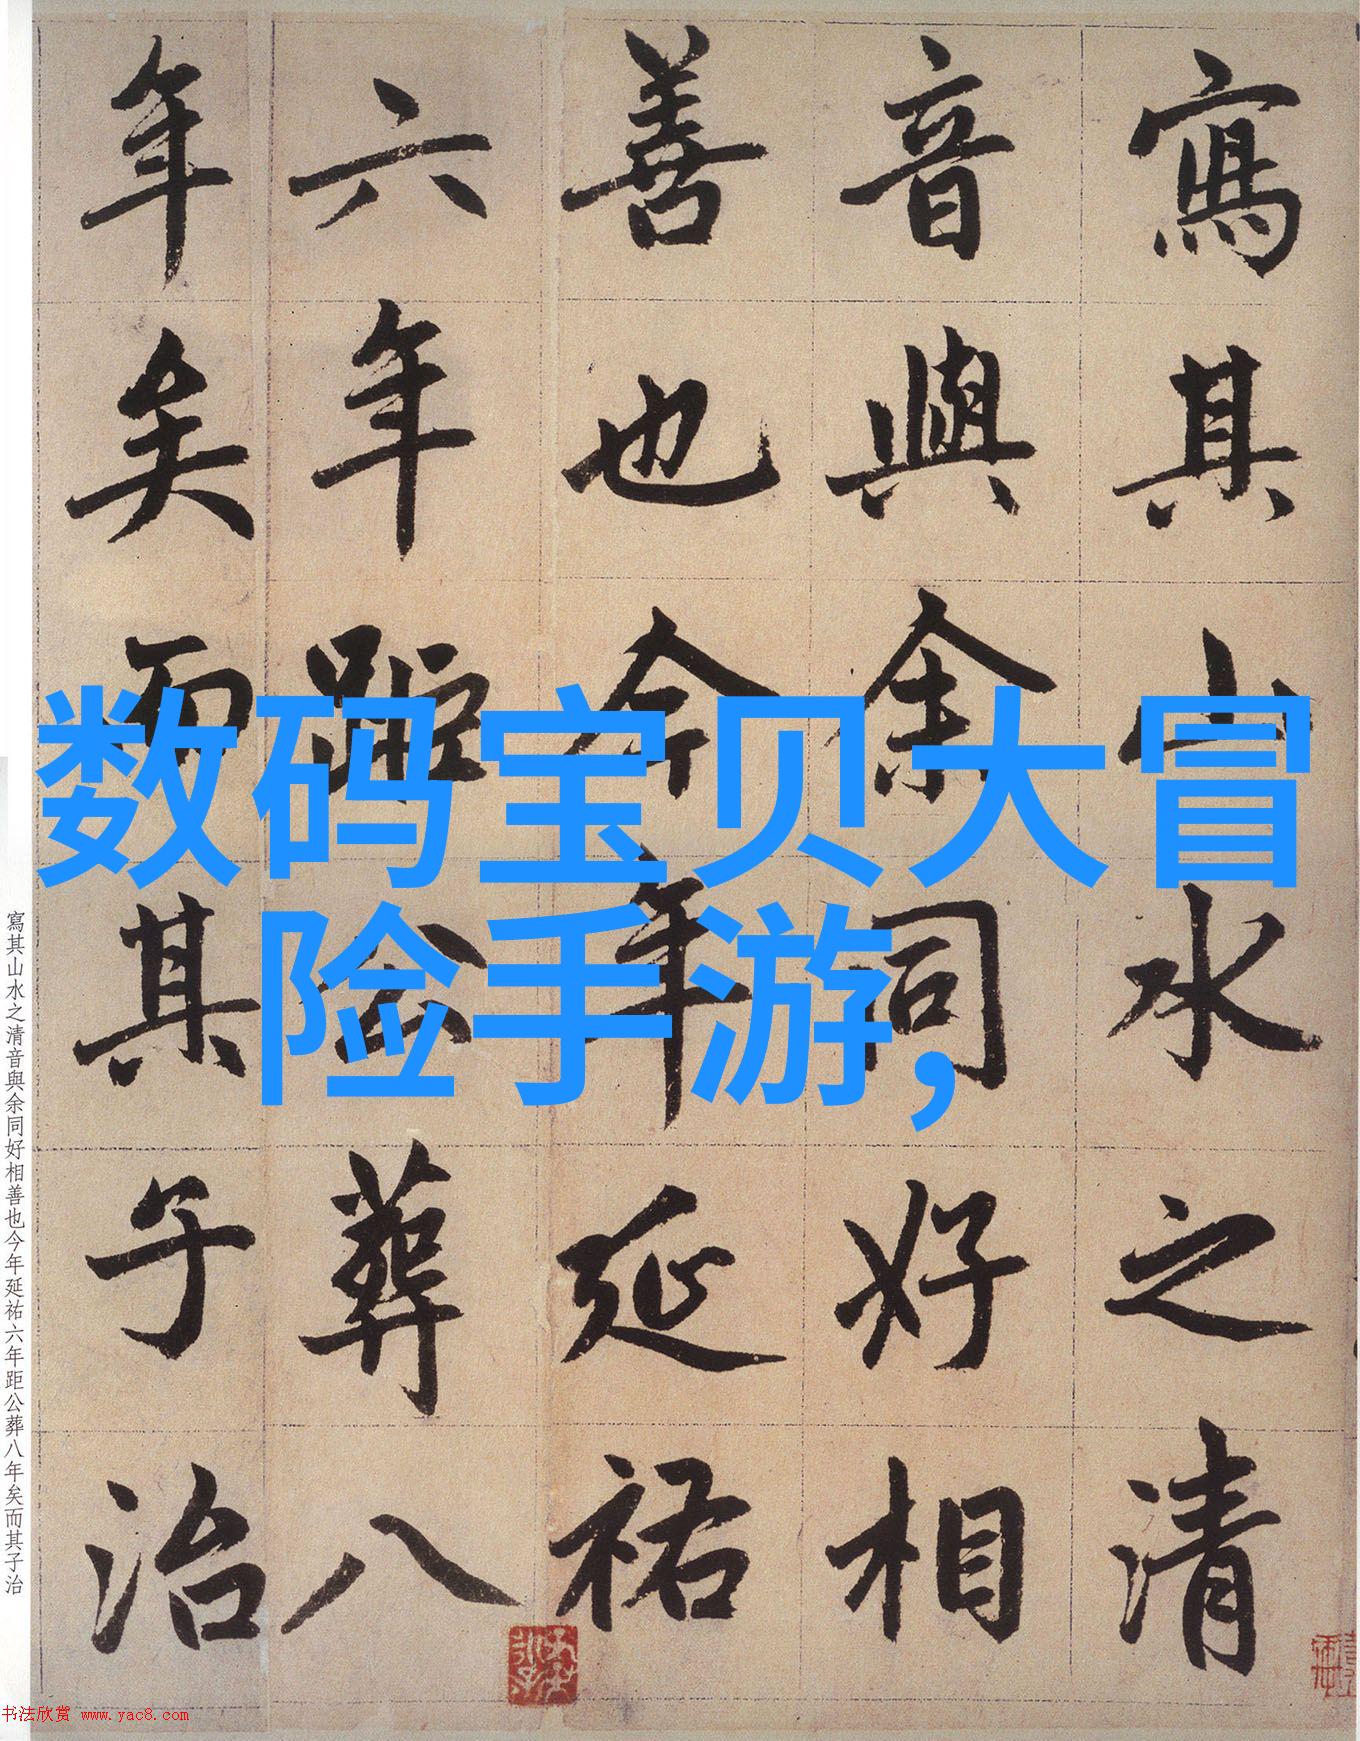 寫其山水之清
音與余同好相
善也今年延祐
六年距公葬八
年矣而其子治
数码宝贝大冒
险手游,
寫其山水之清音與余同好相善也今年延祐六年距公葬八年矣而其子治
书法欣赏 www.yac8.com